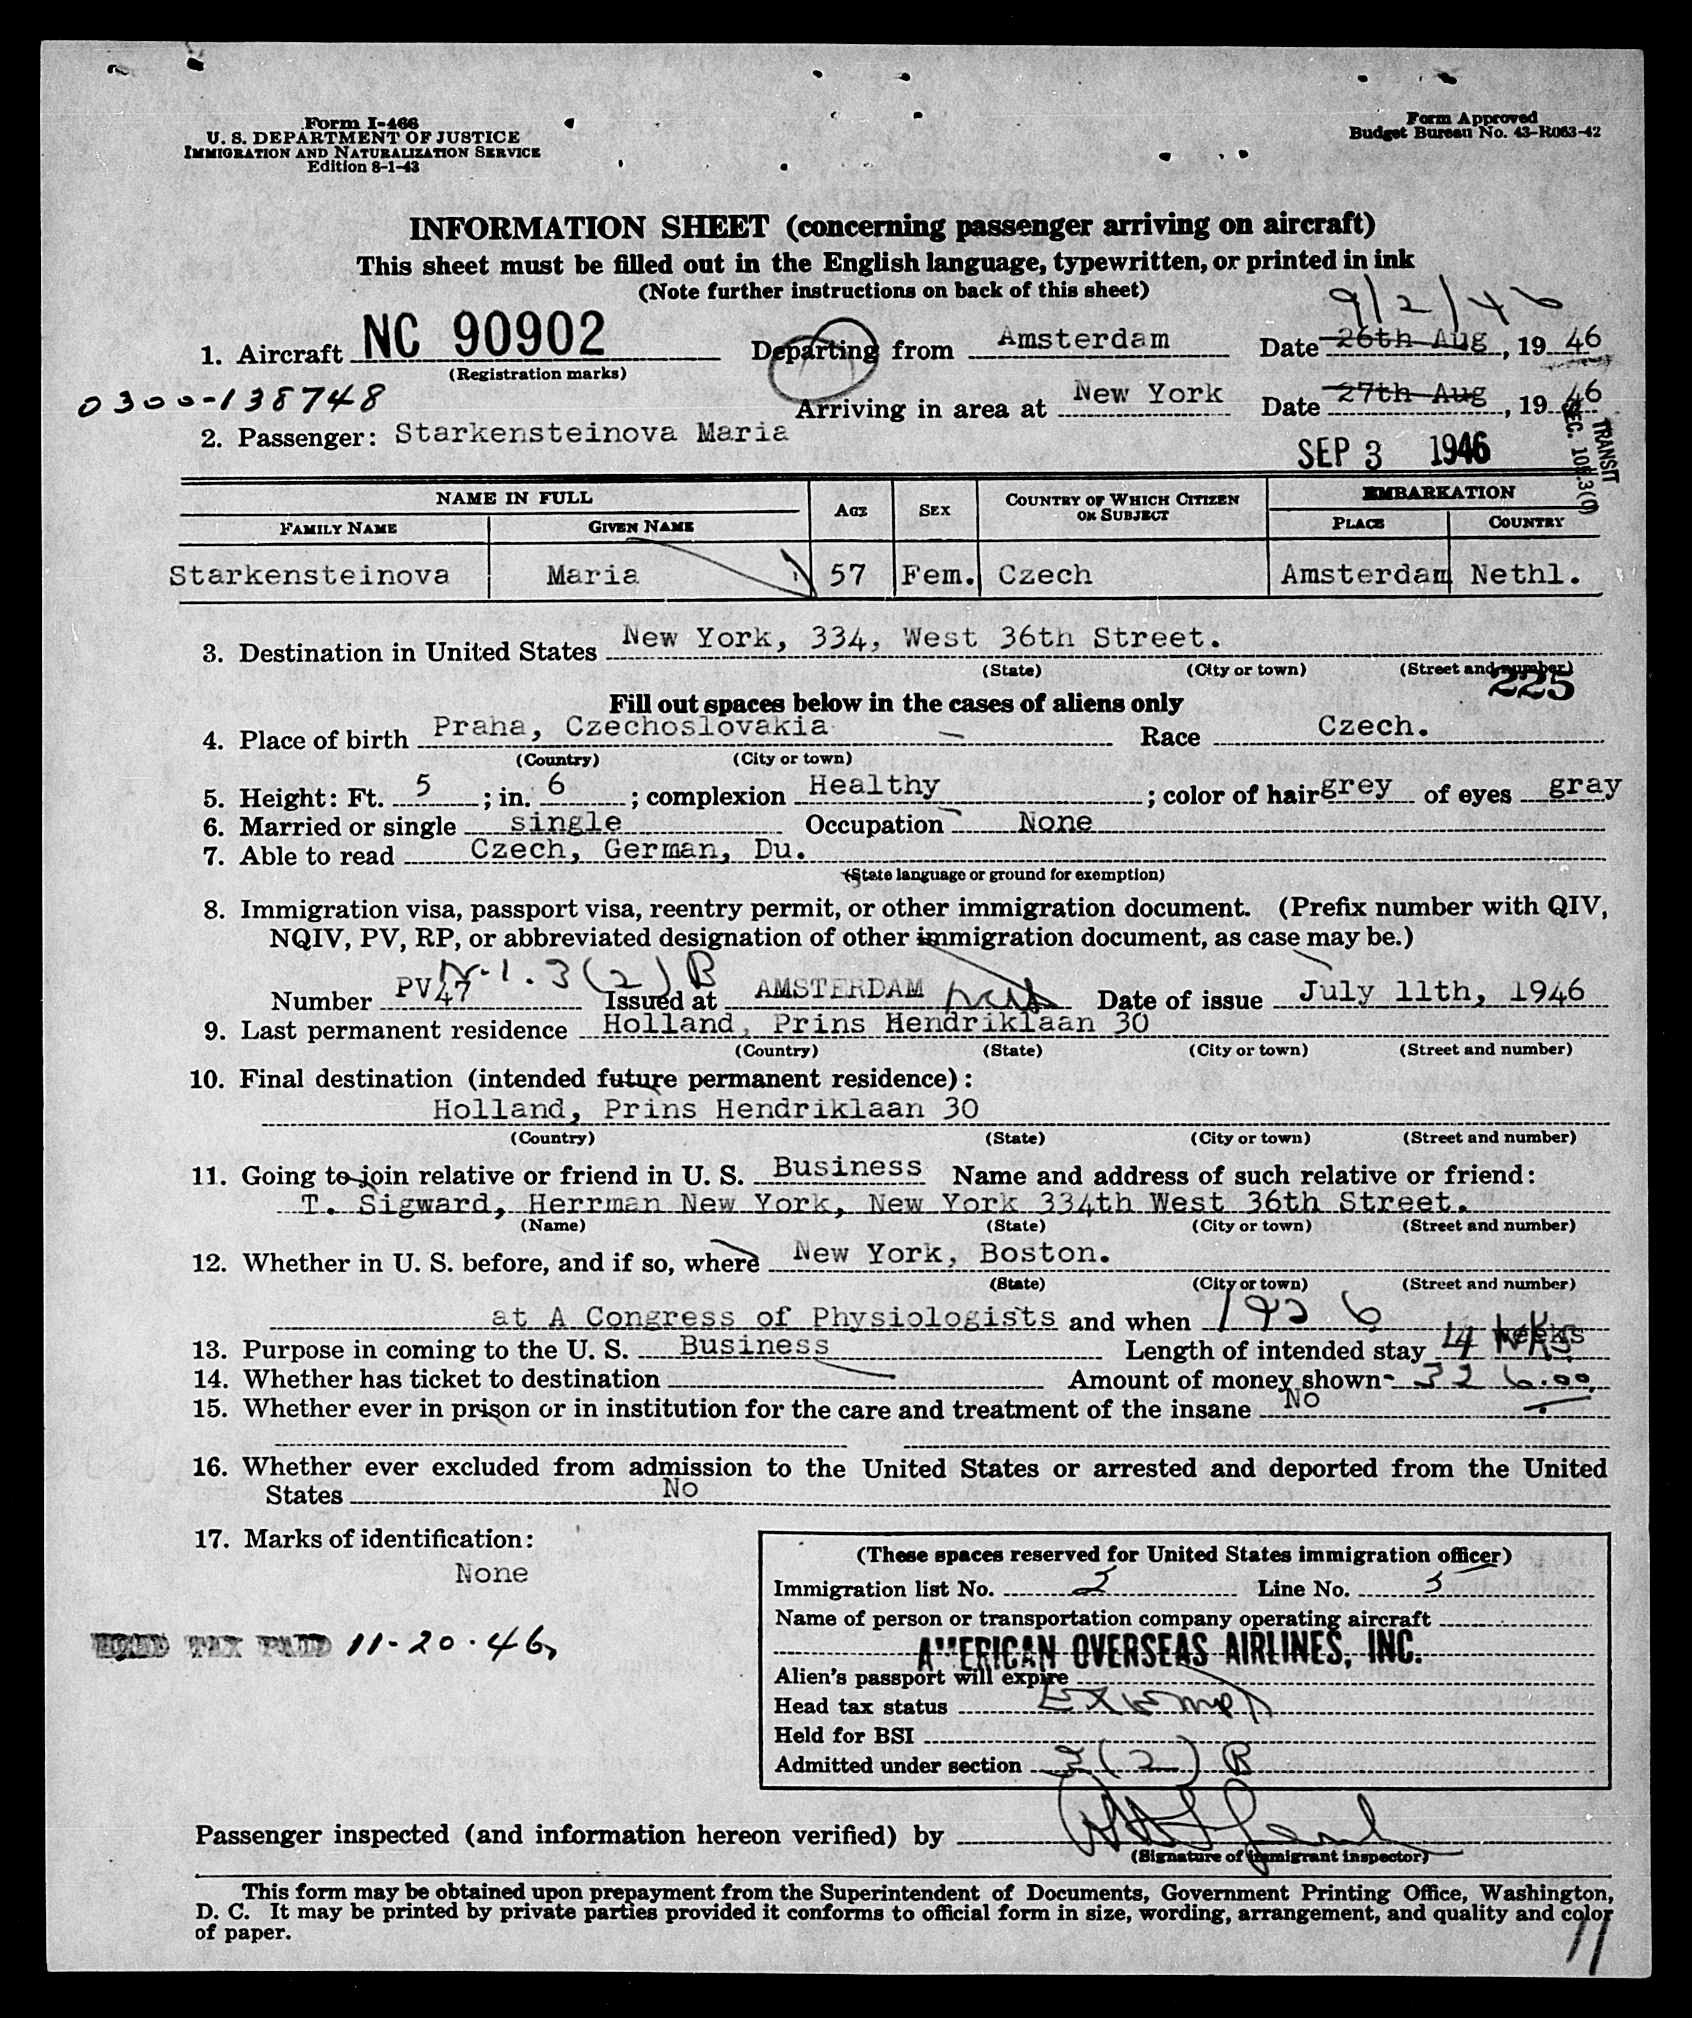 Form I-466
U. S. DEPARTMENT OF JUSTICE
IMMIGRATION AND NATURALIZATION SERVICE
Edition 8-1-43
Form Approved
Budget Bureau No. 43-R063-42
INFORMATION SHEET (concerning passenger arriving on aircraft)
This sheet must be filled out in the English language, typewritten, or printed in ink
(Note further instructions on back of this sheet)
9/2/46
1. Aircraft NC 90902 Departing from Amsterdam Date 26th Aug, 19 46
(Registration marks)
0300-138748
Arriving in area at New York Date 27th Aug, 19 46
2. Passenger: Starkensteinova Maria
SEP 3 1946
TRANSIT
NAME IN FULL AGE SEX COUNTRY OF WHICH CITIZEN OR SUBJECT EMBARKATION
FAMILY NAME GIVEN NAME PLACE COUNTRY
Starkensteinova Maria 57 Fem. Czech Amsterdam Nethl.
3. Destination in United States New York, 334, West 36th Street.
(State) (City or town) (Street and number)
225
Fill out spaces below in the cases of aliens only
4. Place of birth Praha, Czechoslovakia Race Czech.
(Country) (City or town)
5. Height: Ft. 5 ; in. 6 ; complexion Healthy ; color of hair grey of eyes gray
6. Married or single single Occupation None
7. Able to read Czech, German, Du.
(State language or ground for exemption)
8. Immigration visa, passport visa, reentry permit, or other immigration document. (Prefix number with QIV,
NQIV, PV, RP, or abbreviated designation of other immigration document, as case may be.)
3(2)B
Number PV 47 Issued at AMSTERDAM Date of issue July 11th, 1946
9. Last permanent residence Holland, Prins Hendriklaan 30
(Country) (State) (City or town) (Street and number)
10. Final destination (intended future permanent residence):
Holland, Prins Hendriklaan 30
(Country) (State) (City or town) (Street and number)
11. Going to join relative or friend in U. S. Business Name and address of such relative or friend:
T. Sigward, Herrman New York, New York 334th West 36th Street.
(Name) (State) (City or town) (Street and number)
12. Whether in U. S. before, and if so, where New York, Boston.
(State) (City or town) (Street and number)
at A Congress of Physiologists and when 1926
13. Purpose in coming to the U. S. Business Length of intended stay 14 weeks
14. Whether has ticket to destination Amount of money shown 326.00
15. Whether ever in prison or in institution for the care and treatment of the insane No
16. Whether ever excluded from admission to the United States or arrested and deported from the United
States No
17. Marks of identification:
None
HEAD TAX PAID 11-20-46
(These spaces reserved for United States immigration officer)
Immigration list No. 2 Line No. 5
Name of person or transportation company operating aircraft
AMERICAN OVERSEAS AIRLINES, INC.
Alien's passport will expire
Head tax status Exempt
Held for BSI
Admitted under section 3(2)B
Passenger inspected (and information hereon verified) by
(Signature of immigrant inspector)
This form may be obtained upon prepayment from the Superintendent of Documents, Government Printing Office, Washington,
D. C. It may be printed by private parties provided it conforms to official form in size, wording, arrangement, and quality and color
of paper.
11